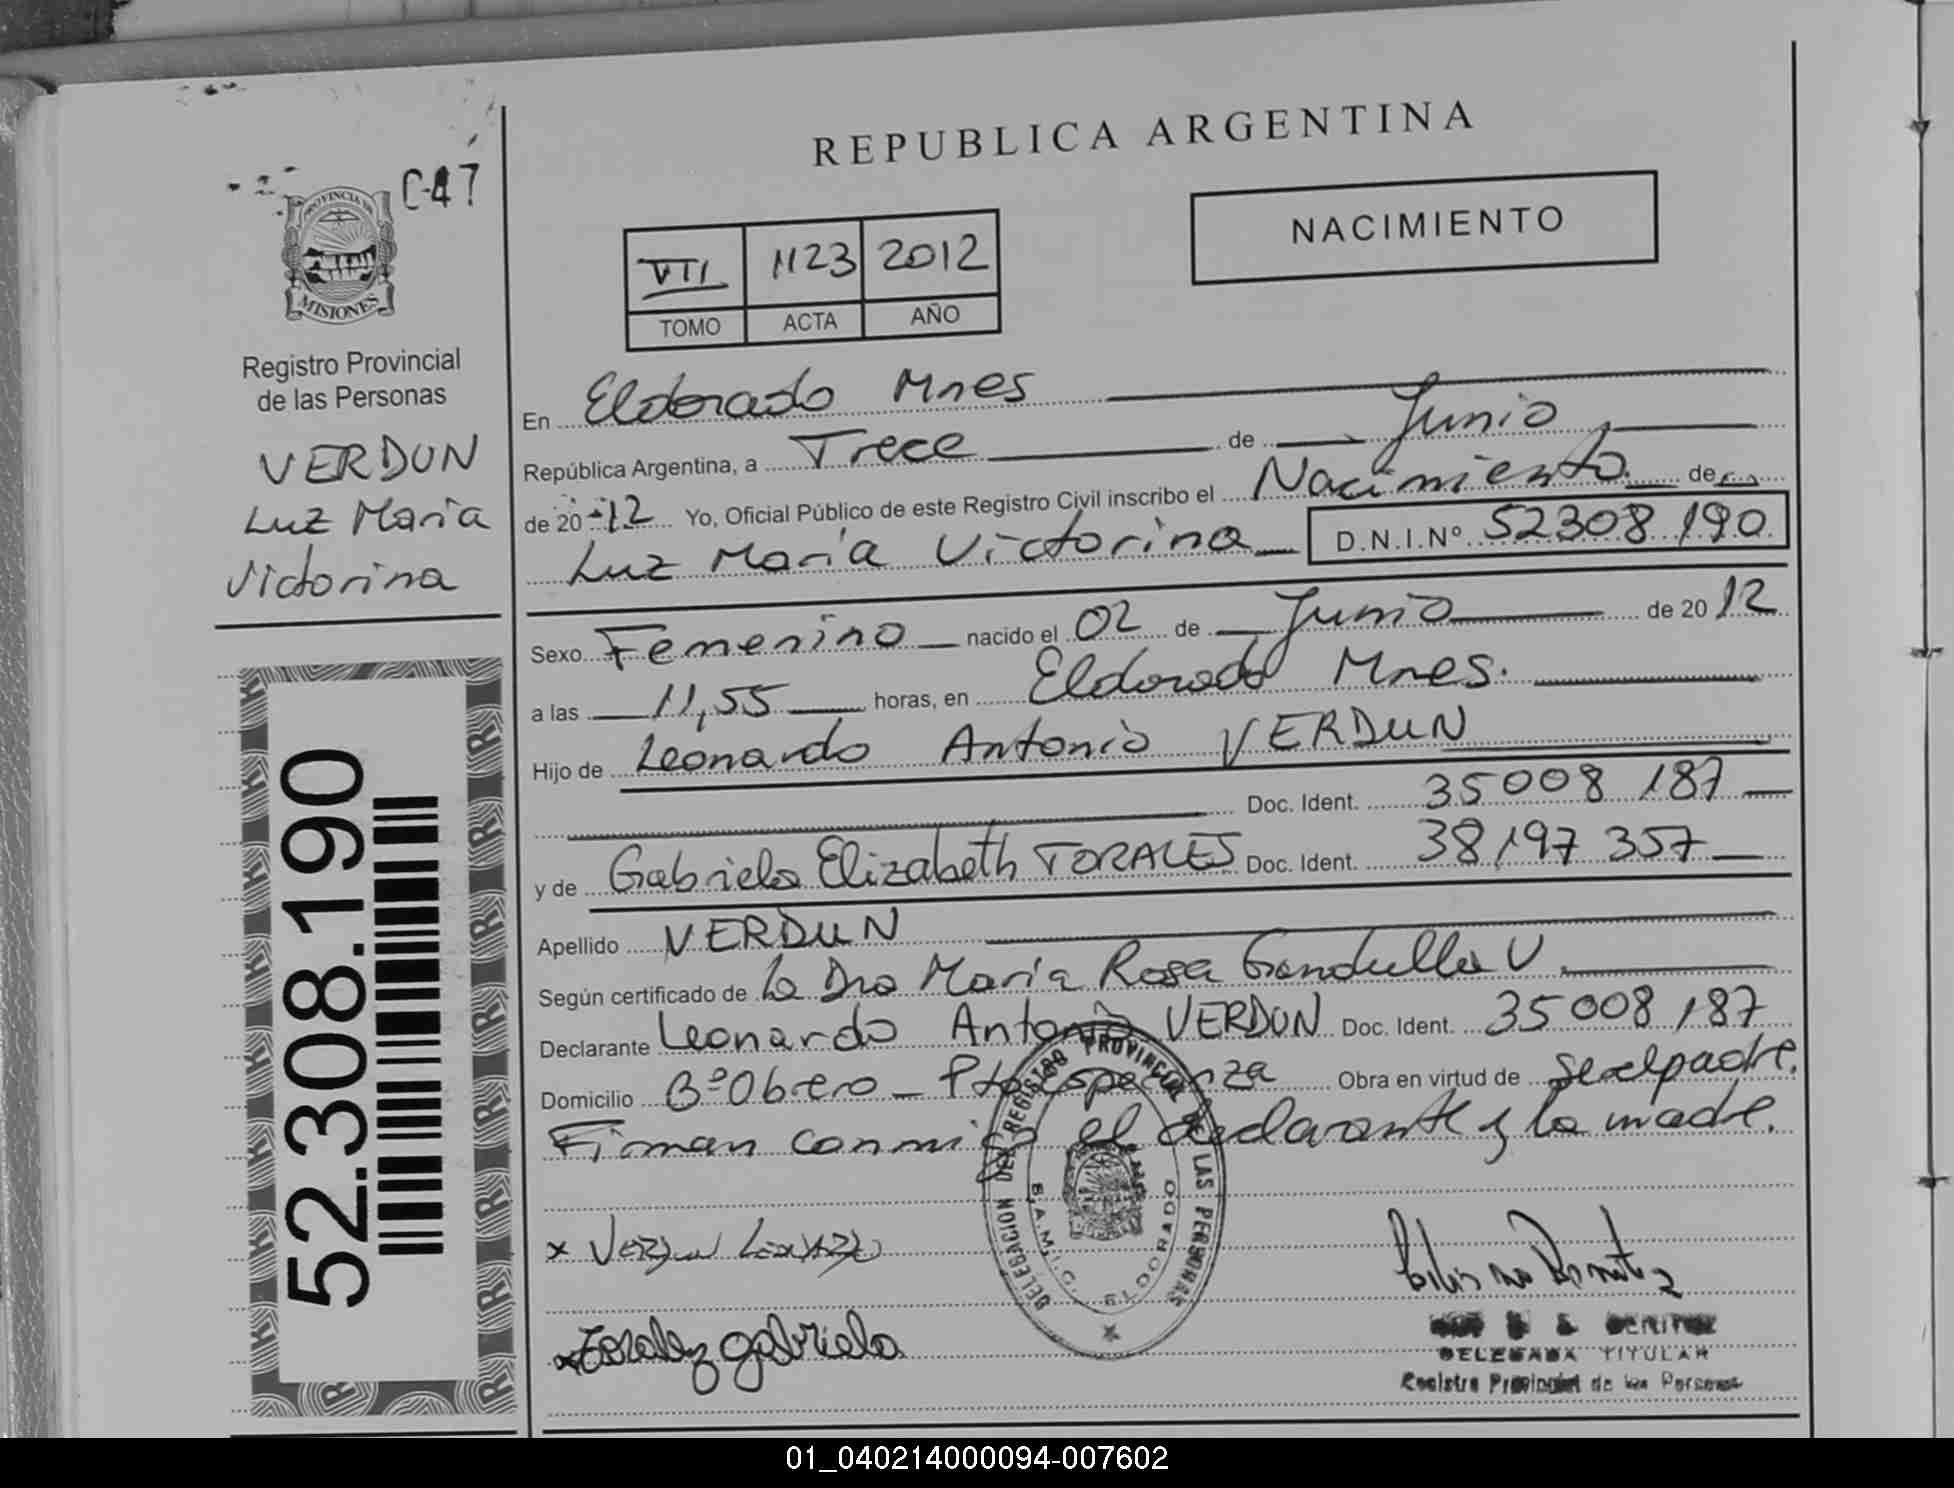 REPUBLICA ARGENTINA
C-47
PROVINCIA DE
MISIONES
Registro Provincial
de las Personas
VERDUN
Luz Maria
Victorina
52.308.190
NACIMIENTO
VII 1123 2012
TOMO ACTA AÑO
En Eldorado Mnes
República Argentina, a Trece de Junio
de 20 12 Yo, Oficial Público de este Registro Civil inscribo el Nacimiento de
Luz Maria Victorina D.N.I.Nº 52308190
Sexo Femenino nacido el 02 de Junio de 20 12
a las 11,55 horas, en Eldorado Mnes.
Hijo de Leonardo Antonio VERDUN
Doc. Ident. 35008187
y de Gabriela Elizabeth TORALES Doc. Ident. 38197357
Apellido VERDUN
Según certificado de la Dra Maria Rosa Gandulla V
Declarante Leonardo Antonio VERDUN Doc. Ident. 35008187
Domicilio Bº Obrero - Pto Esperanza Obra en virtud de ser el padre.
Firman conmigo el declarante y la madre.
DELEGACION DEL REGISTRO PROVINCIAL DE LAS PERSONAS
ELDORADO
x Verdun
gabriela
BENITEZ
DELEGADA TITULAR
Registro Provincial de las Personas
01_040214000094-007602